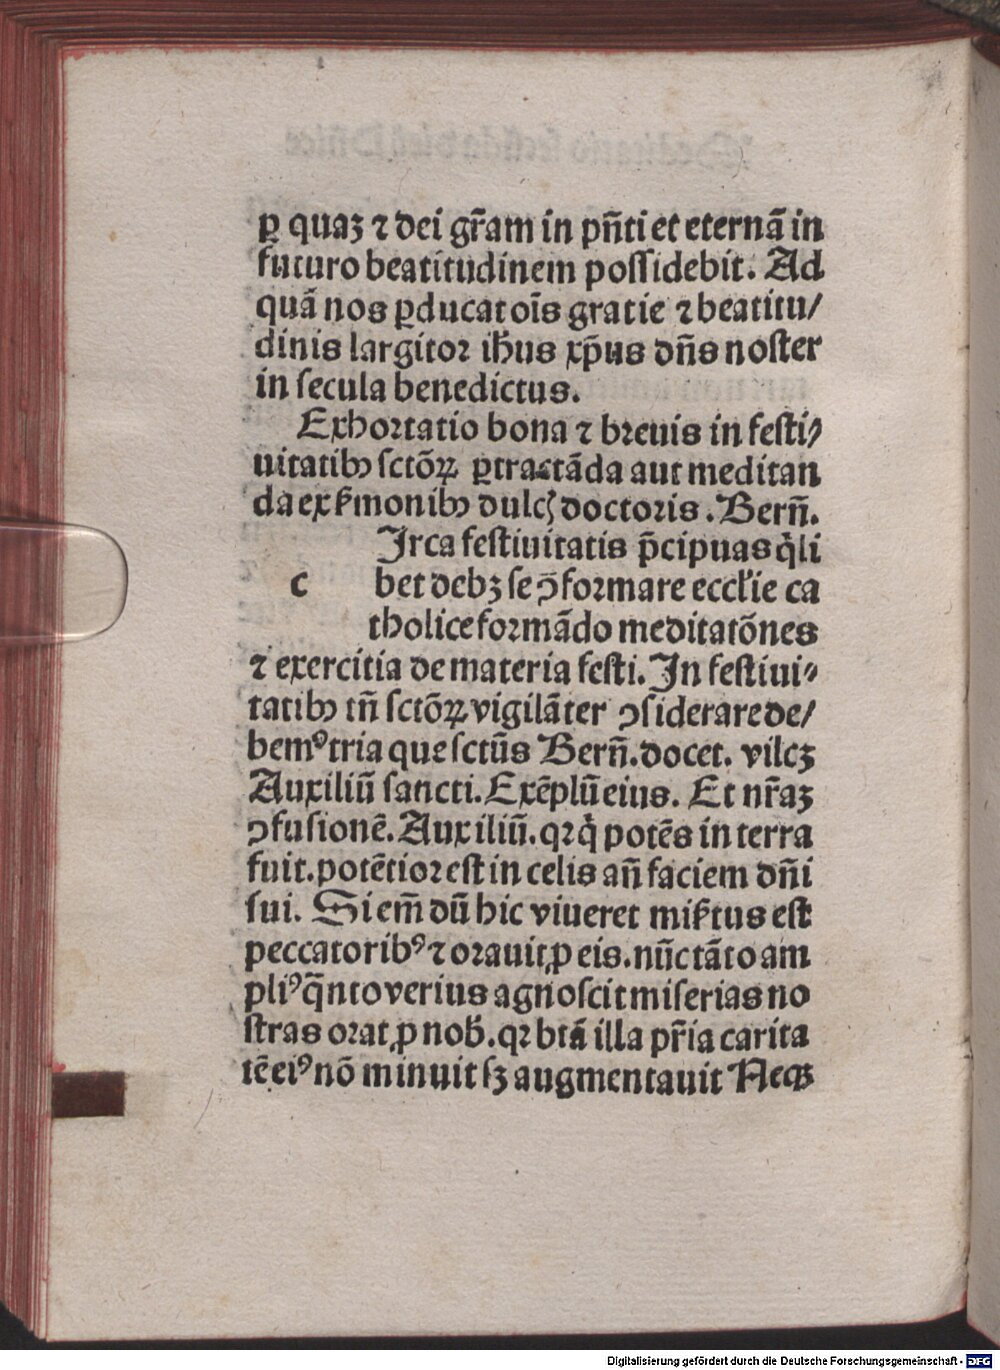 ꝑ quaꝫ ⁊ dei gr̃am in pñti et eternã in
futuro beatitudinem poſſidebit. Ad
quã nos ꝑducat oĩs gratie ⁊ beatitu/
dinis largitoꝛ ih̃us xp̃us dñs noſter
in ſecula benedictus.
Exhoꝛtatio bona ⁊ bꝛeuis in feſti⸗
uitatibꝫ ſctõꝝ ꝑtractãda aut meditan
da ex ẜmonibꝫ dulcꝭ doctoꝛis. Bern̄.
Irca feſtiuitatis p̃cipuas q̇li
c bet debꝫ ſe ꝯfoꝛmare eccƚie ca
tholice foꝛmãdo meditatõnes
⁊ exercitia de materia feſti. In feſtiui⸗
tatibꝫ tñ ſctõꝝ vigilãter ꝯſiderare de/
bemꝰ tria que ſctũs Bern̄. docet. vilcꝫ
Auxiliũ ſancti. Exẽplũ eius. Et nr̃aꝫ
ꝯfuſionẽ. Auxiliũ. qꝛ q̇ potẽs in terra
fuit. potẽtioꝛ eſt in celis añ faciem dñi
ſui. Si em̃ dũ hic viueret miẜtus eſt
peccatoꝛibꝰ ⁊ oꝛauit ꝓ eis. nũc tãto am
pliꝰ q̃nto verius agnoſcit miſerias no
ſtras oꝛat ꝓ nob̃. qꝛ btã illa pr̃ia carita
tẽ eiꝰ nõ minuit ſꝫ augmentauit Necꝫ
Digitalisierung gefördert durch die Deutsche Forschungsgemeinschaft - DFG